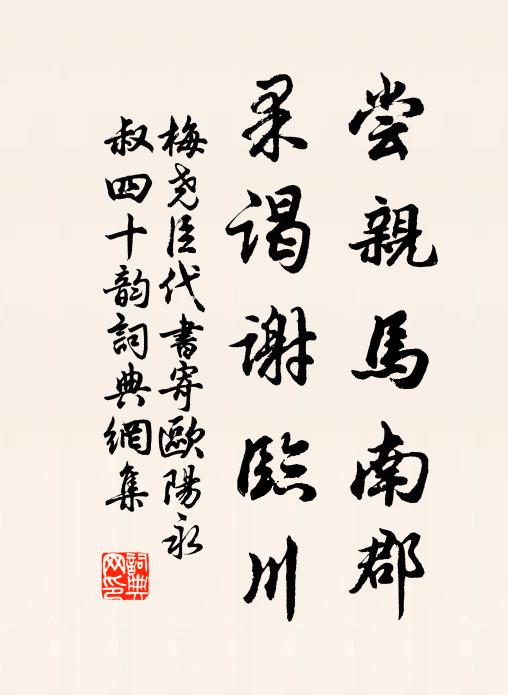 尝親馬南郡
谒謝臨川
梅尧臣代書寄歐陽永
叔四十韵詞典網集
詞典
网印